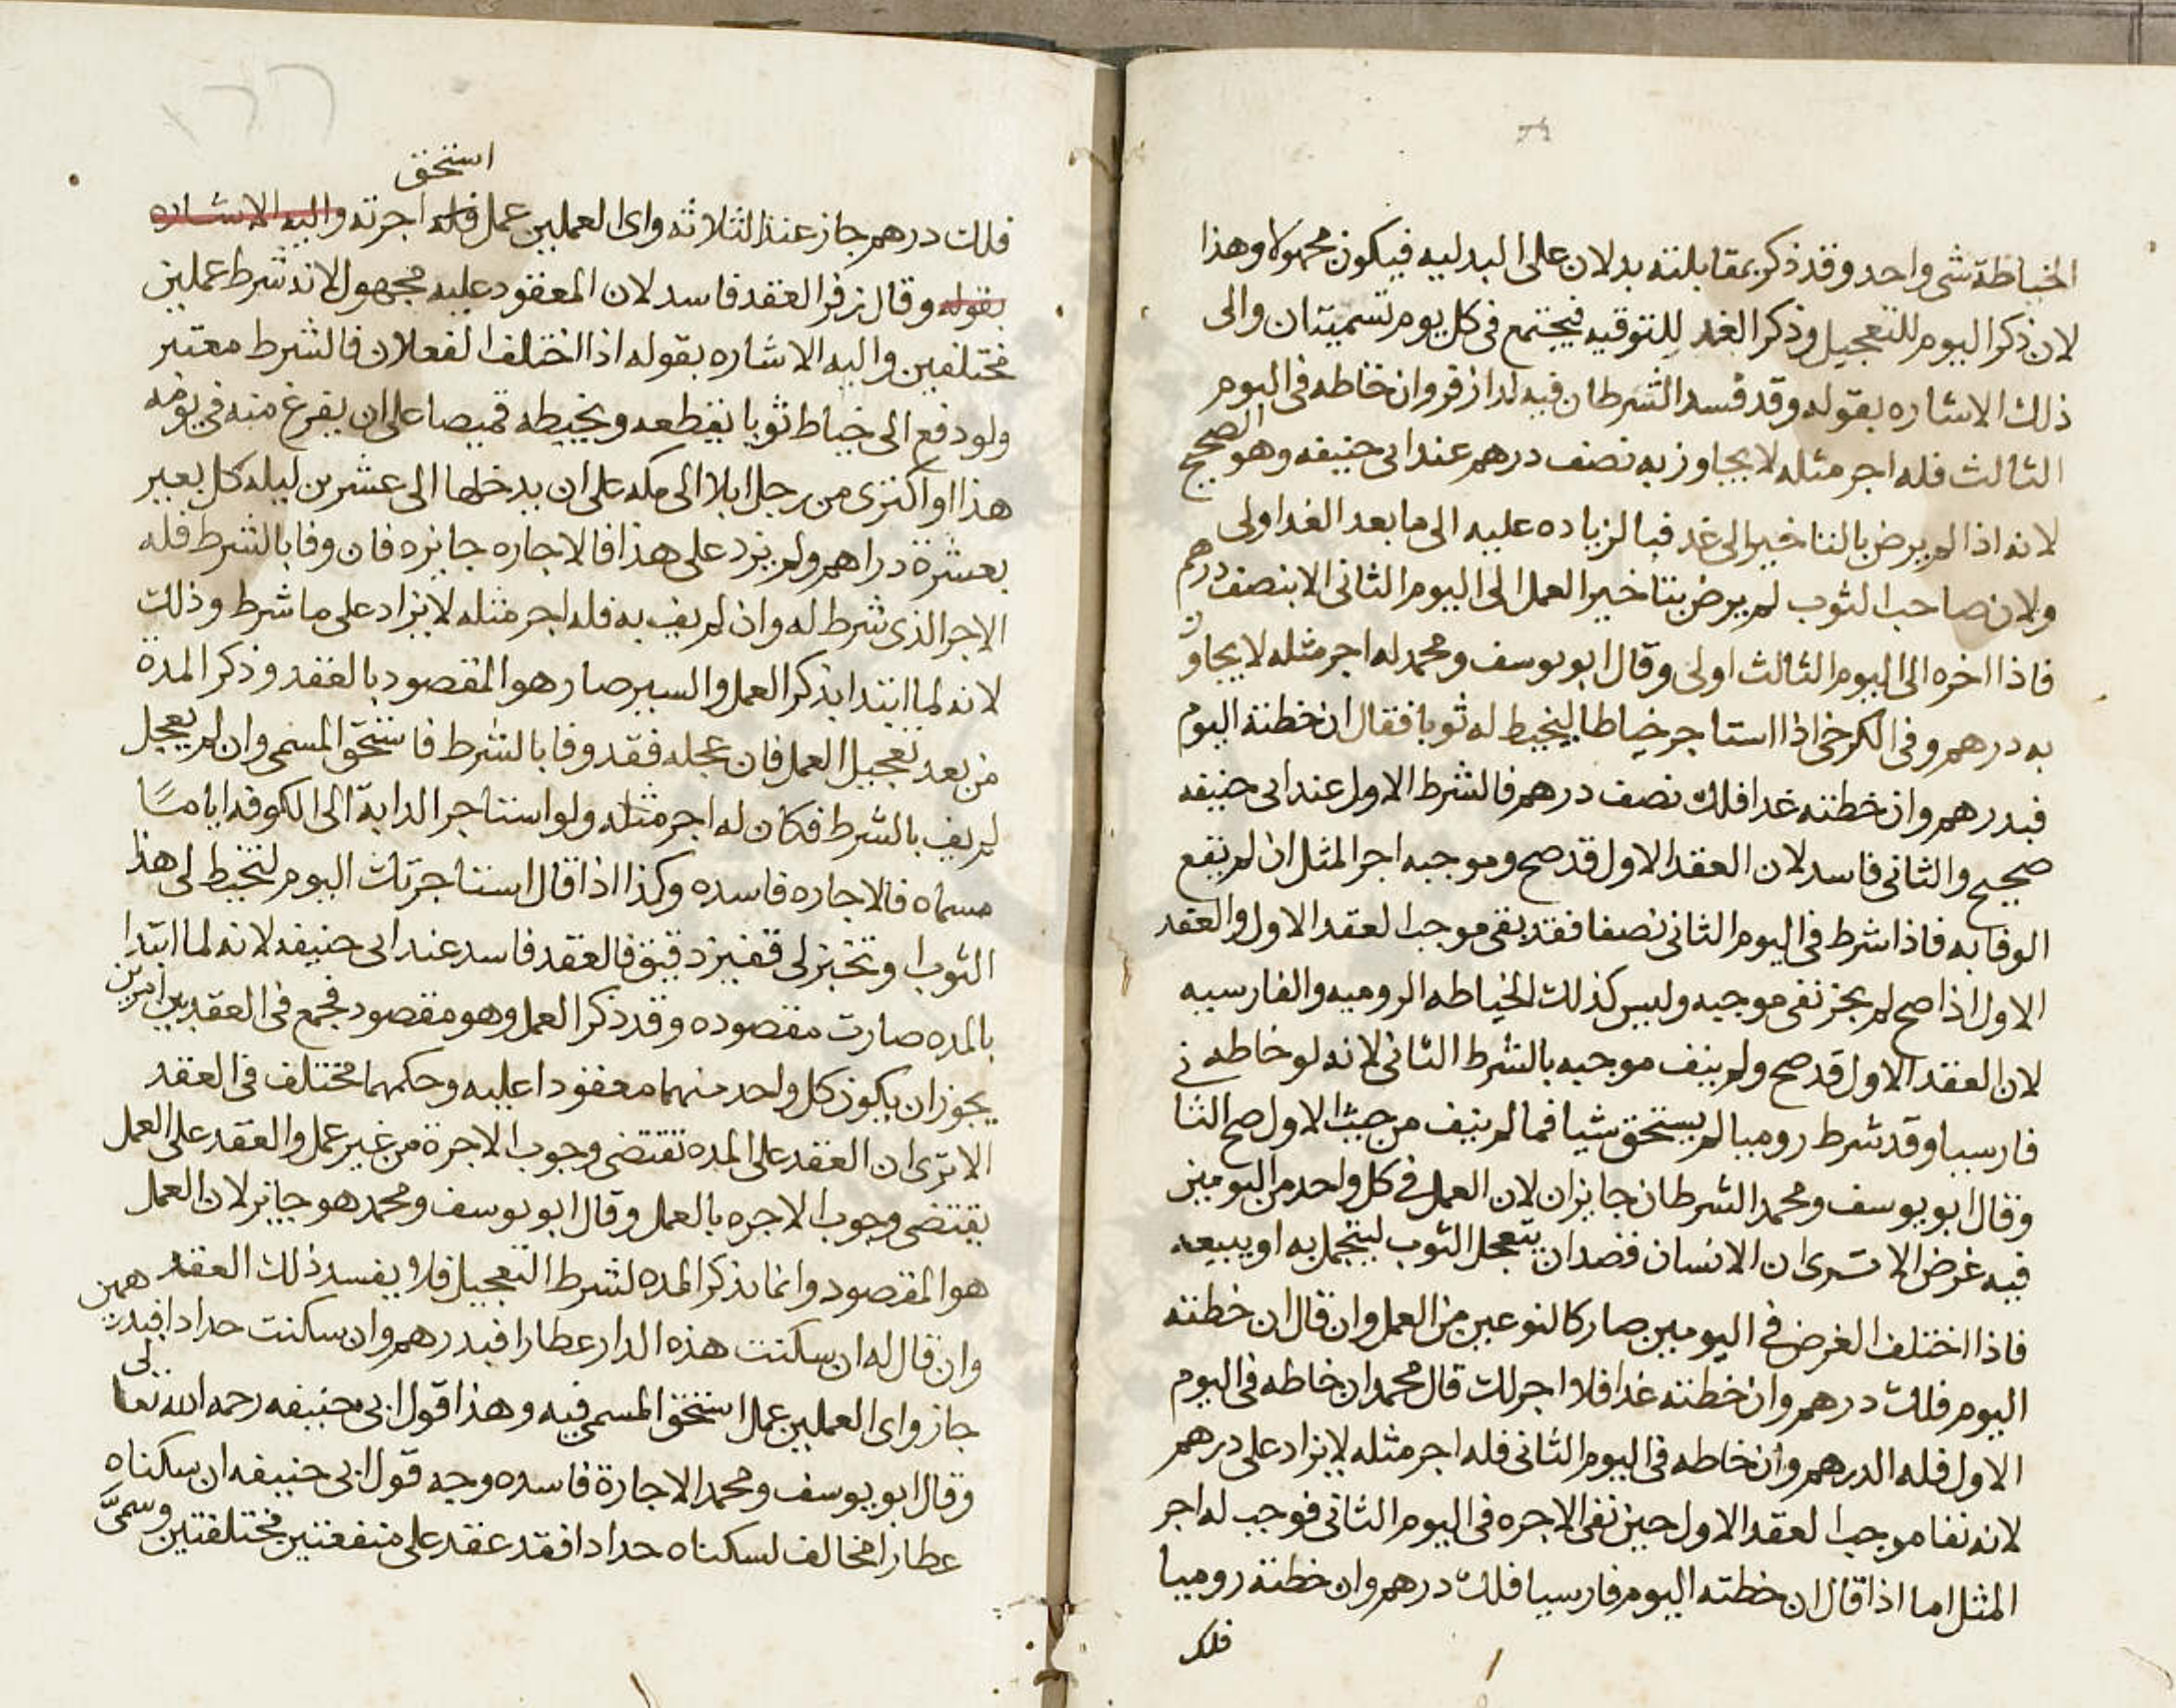 الخياطة شي واحد وقد ذكر بمقابلته بدلان على البدليه فيكون مجهولا وهذا
لان ذكر اليوم للتعجيل وذكر الغد للتوقيه فيجتمع في كل يوم تسميتان والى
ذلك الاشاره بقوله وقد فسد الشرطان فيه لدا زفر وان خاطه في اليوم
الثالث فله اجر مثله لا يجاوز به نصف درهم عند ابى حنيفه وهو الصحيح
لانه اذا لم يرض بالتاخير الى غد فبالزياده عليه الى ما بعد الغد اولى
ولان صاحب الثوب لم يرض بتاخير العمل الى اليوم الثانى الا بنصف درهم
فاذا اخره الى اليوم الثالث اولى وقال ابو يوسف ومحمد له اجر مثله لا يجاوز
به درهم وفى الكرخى اذا استاجر خياطا ليخيط له ثوبا فقال ان خطته اليوم
فبدرهم وان خطته غدا فلك نصف درهم فالشرط الاول عند ابى حنيفه
صحيح والثانى فاسد لان العقد الاول قد صح وموجبه اجر المثل ان لم يقع
الوفا به فاذا شرط فى اليوم الثانى نصفا فقد بقى موجب العقد الاول والعقد
الاول اذا صح لم يجز نفى موجبه وليس كذلك الخياطه الروميه والفارسيه
لان العقد الاول قد صح ولم ينف موجبه بالشرط الثانى لانه لو خاطه فى
فارسيا وقد شرط روميا لم يستحق شيا فما لم ينف من حيث الاول صح الثا
وقال ابو يوسف ومحمد الشرطان جايزان لان العمل فى كل واحد من اليومين
فيه غرض الا ترى ان الانسان قصد ان يتعجل الثوب ليتجمل به او يبيعه
فاذا اختلف الغرض فى اليومين صار كالنوعين من العمل وان قال ان خطته
اليوم فلك درهم وان خطته غدا فلا اجر لك قال محمد ان خاطه فى اليوم
الاول فله الدرهم وان خاطه فى اليوم الثانى فله اجر مثله لا يزاد على درهم
لانه نفا موجب العقد الاول حين نفى الاجره فى اليوم الثانى فوجب له اجر
المثل اما اذا قال ان خطته اليوم فارسيا فلك درهم وان خطته روميا
فلك
استحق
فلك درهم جاز عند الثلاثه واى العملين عمل فله اجرته واليه الاشاره
بقوله وقال زفر العقد فاسد لان المعقود عليه مجهول لانه شرط عملين
مختلفين واليه الاشاره بقوله اذا اختلف الفعلان فالشرط معتبر
ولو دفع الى خياط ثوبا يقطعه ويخيطه قميصا على ان يفرغ منه فى يومه
هذا او اكترى من رجل ابلا الى مكه على ان يدخلها الى عشرين ليله كل بعير
بعشرة دراهم ولم يزد على هذا فالاجاره جايزه فان وفا بالشرط فله
الاجر الذى شرط له وان لم يف به فله اجر مثله لا يزاد على ما شرط وذلك
لانه لما ابتدا بذكر العمل والسير صار هو المقصود بالعقد وذكر المدة
من بعد تعجيل العمل فان عجله فقد وفا بالشرط فاستحق المسمى وان لم يعجيل
لم يف بالشرط فكان له اجر مثله ولو استاجر الدابة الى الكوفه اياما
مسماه فالاجاره فاسده وكذا اذا قال استاجرتك اليوم لتخيط لى هذا
الثوب او تخبز لى قفيز دقيق فالعقد فاسد عند ابى حنيفه لانه لما ابتدا
بالمده صارت مقصوده وقد ذكر العمل وهو مقصود فجمع فى العقد بين امرين
يجوز ان يكون كل واحد منهما معقودا عليه وحكمهما مختلف فى العقد
الا ترى ان العقد على المده تقتضى وجوب الاجرة من غير عمل والعقد على العمل
يقتضى وجوب الاجره بالعمل وقال ابو يوسف ومحمد هو جايز لان العمل
هو المقصود وانما يذكر المده لشرط التعجيل فلا يفسد ذلك العقد
وان قال له ان سكنت هذه الدار عطارا فبدرهم وان سكنت حدادا فبدرهمين
جاز واى العملين عمل استحق المسمى فيه وهذا قول ابى حنيفه رحمه الله تعالى
وقال ابو يوسف ومحمد الاجارة فاسده وجه قول ابى حنيفه ان سكناه
عطارا مخالف لسكناه حدادا فقد عقد على منفعتين مختلفتين وسمىّ